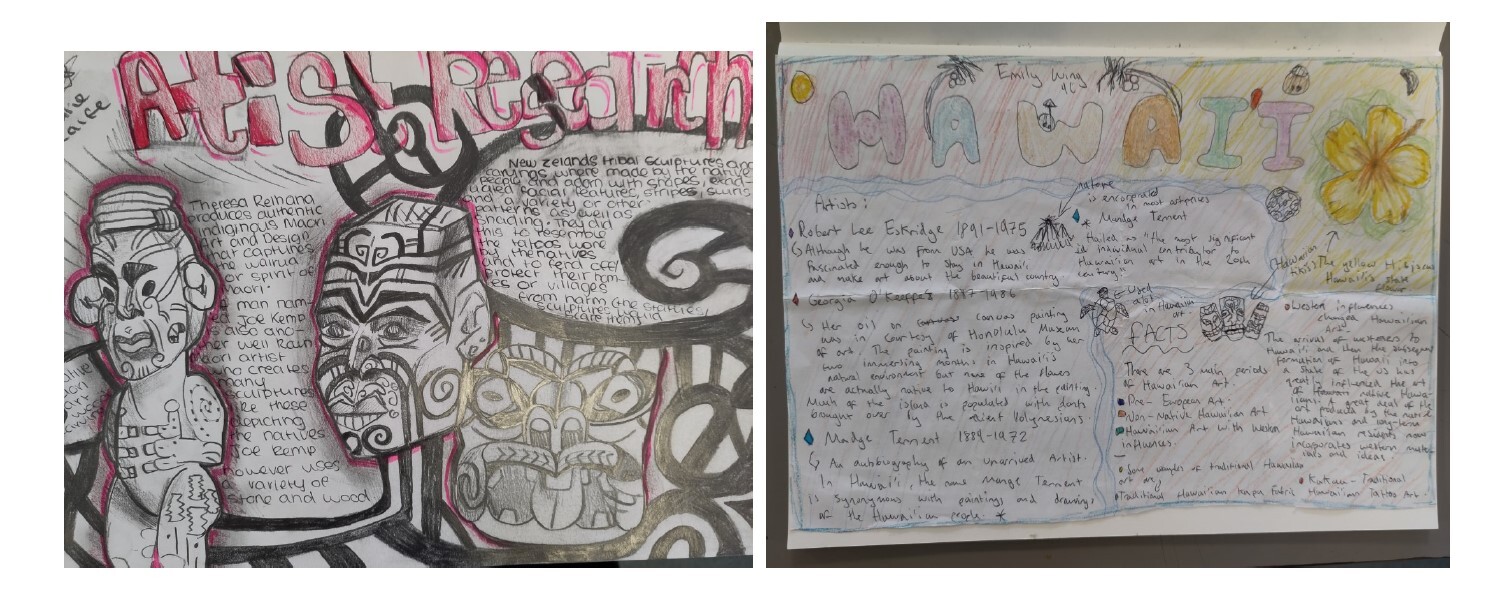 Artist Research
Theresa Reihana
produces authentic
indiginous Maori
Art and Design
that captures
the wairua
or spirit of
Maori.
A man nam-
Joe Kemp
is also ano-
ther well
Maori artist
who creates
many
sculptures
like these
depicting
the natives
Joe Kemp
however uses
a variety of
stone and wood
New Zelands tribal sculptures and
carvings where made by the native
people and adorn with shapes, exad-
urated facial features, stripes, swirls
and a variety or other
patterns as well as
shading. They did
this to resemble
the tattoos wore
by the natives
and to fend off/
protect their hom-
es or villages
from harm (the statues,
sculptures would
scare them)
Emily Wing
9C
HAWAI'I
Artists:
Robert Lee Eskridge 1891-1975
Although he was from USA he was
fascinated enough to stay in Hawaii
and make art about the beautiful country
Georgia O'Keeffes 1887-1986
Her oil on canvas painting
was in courtesy of Honolulu Museum
of art. The painting is inspired by her
two immersing months in Hawaii's
natural environment but none of the flowers
are actually native to Hawaii in the painting.
Much of the island is populated with
brought over by the
Madge Tennent 1889-1972
An autobiography of an unarrived Artist.
In Hawai'i, the name Madge Tennent
is synonymous with paintings and drawings
of the Hawaiian people. *
nature
is encorporated
in most artpries
* Madge Tennent
Hailed as "the most significant
individual contributor to
Hawaiian art in the 20th
century"
Used
in Hawaiian
art.
Hawaiian
tikis
The yellow Hibiscus
Hawaii's state
flower
FACTS
There are 3 main periods
of Hawaiian Art.
Pre- European Art.
Non-Native Hawaiian Art
Hawaiian Art with Western
influences.
Some samples of traditional Hawaiian
art are
Traditional Hawaiian kapa Fabric
Western influences
change Hawaiian
Art
The arrival of westeners to
Hawaii and then the subsequent
formation of Hawaii into
a state of the US has
greatly influenced the art
of Hawaii native Hawa-
iians. A great deal of the
art produced by the native
Hawaiians and long-term
Hawaiian residents now
incoporates western mater-
ials and ideas.
Kakau - Traditional
Hawaiian Tattoo Art.